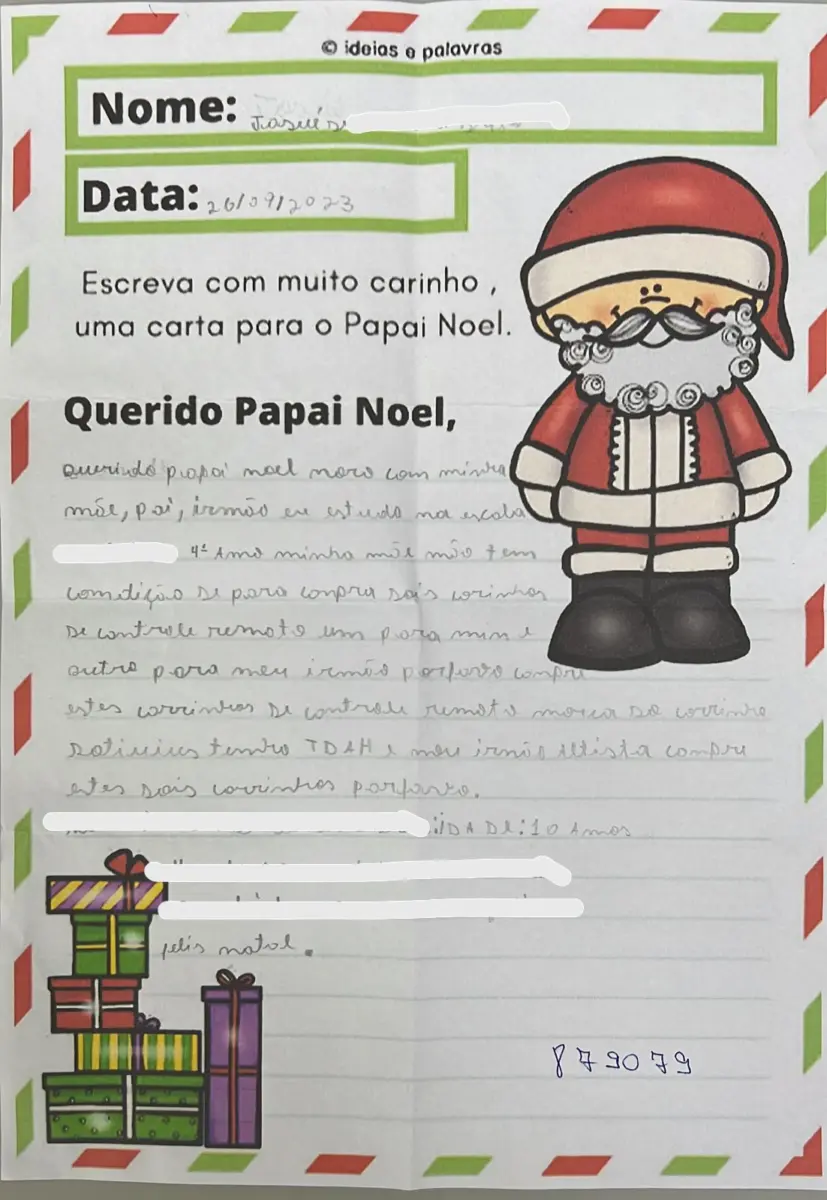 © ideias e palavras
Nome: Josué
Data: 26/09/2023
Escreva com muito carinho ,
uma carta para o Papai Noel.
Querido Papai Noel,
Querindo papai noel moro com minha
mãe, pai, irmão eu estudo na escola
4º Amo minha mãe não tem
comdição de para conpra dois corinhos
de controle remoto um para mim e
outro para meu irmão porfavo conpre
estes corrinhos de controle remoto marca do corrinho
tenho TDAH e meu irmão Altista compre
estes dois corrinhos porfavo.
:IDADE:10 Amos
felis natal.
879079